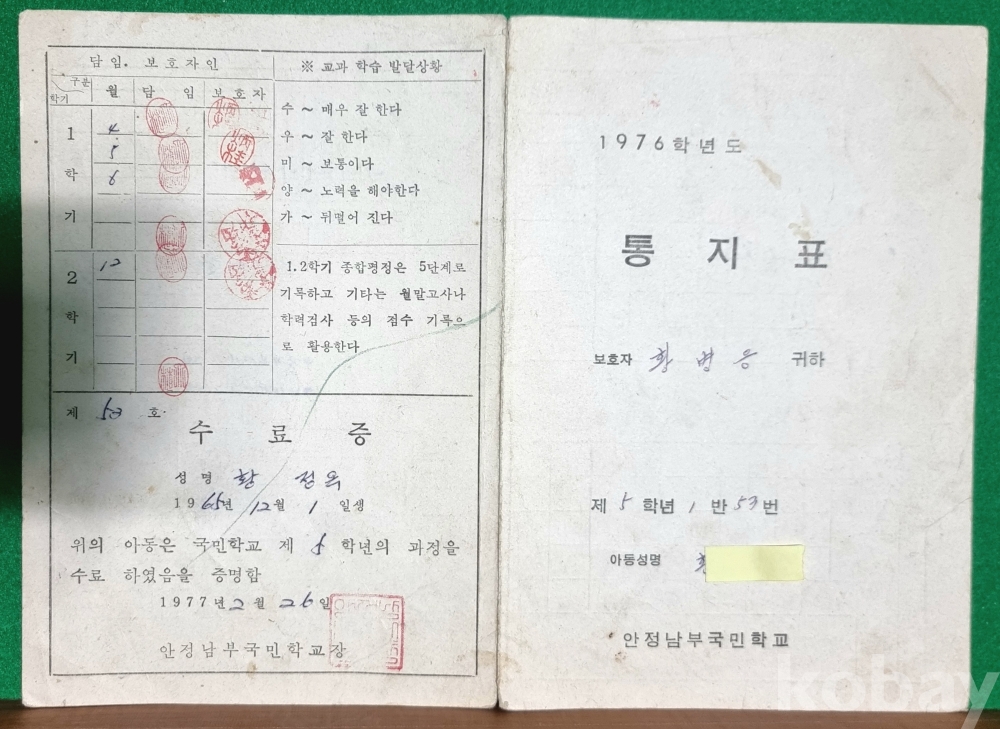 담임. 보호자인
구분
학기
월
담 임
보호자
1
학
기
4
5
6
2
학
기
12
※ 교과 학습 발달상황
수 ~ 매우 잘 한다
우 ~ 잘 한다
미 ~ 보통이다
양 ~ 노력을 해야한다
가 ~ 뒤떨어 진다
1.2학기 종합평정은 5단계로
기록하고 기타는 월말고사나
학력검사 등의 점수 기록으
로 활용한다
제 53 호
수 료 증
성 명 황 정옥
1965년 12월 1 일생
위의 아동은 국민학교 제 5 학년의 과정을
수료 하였음을 증명함
1977년 2월 26일
안정남부국민학교장
1976학년도
통 지 표
보호자 황병응 귀하
제 5 학년 1 반 53번
아동성명 황
안정남부국민학교
kobay